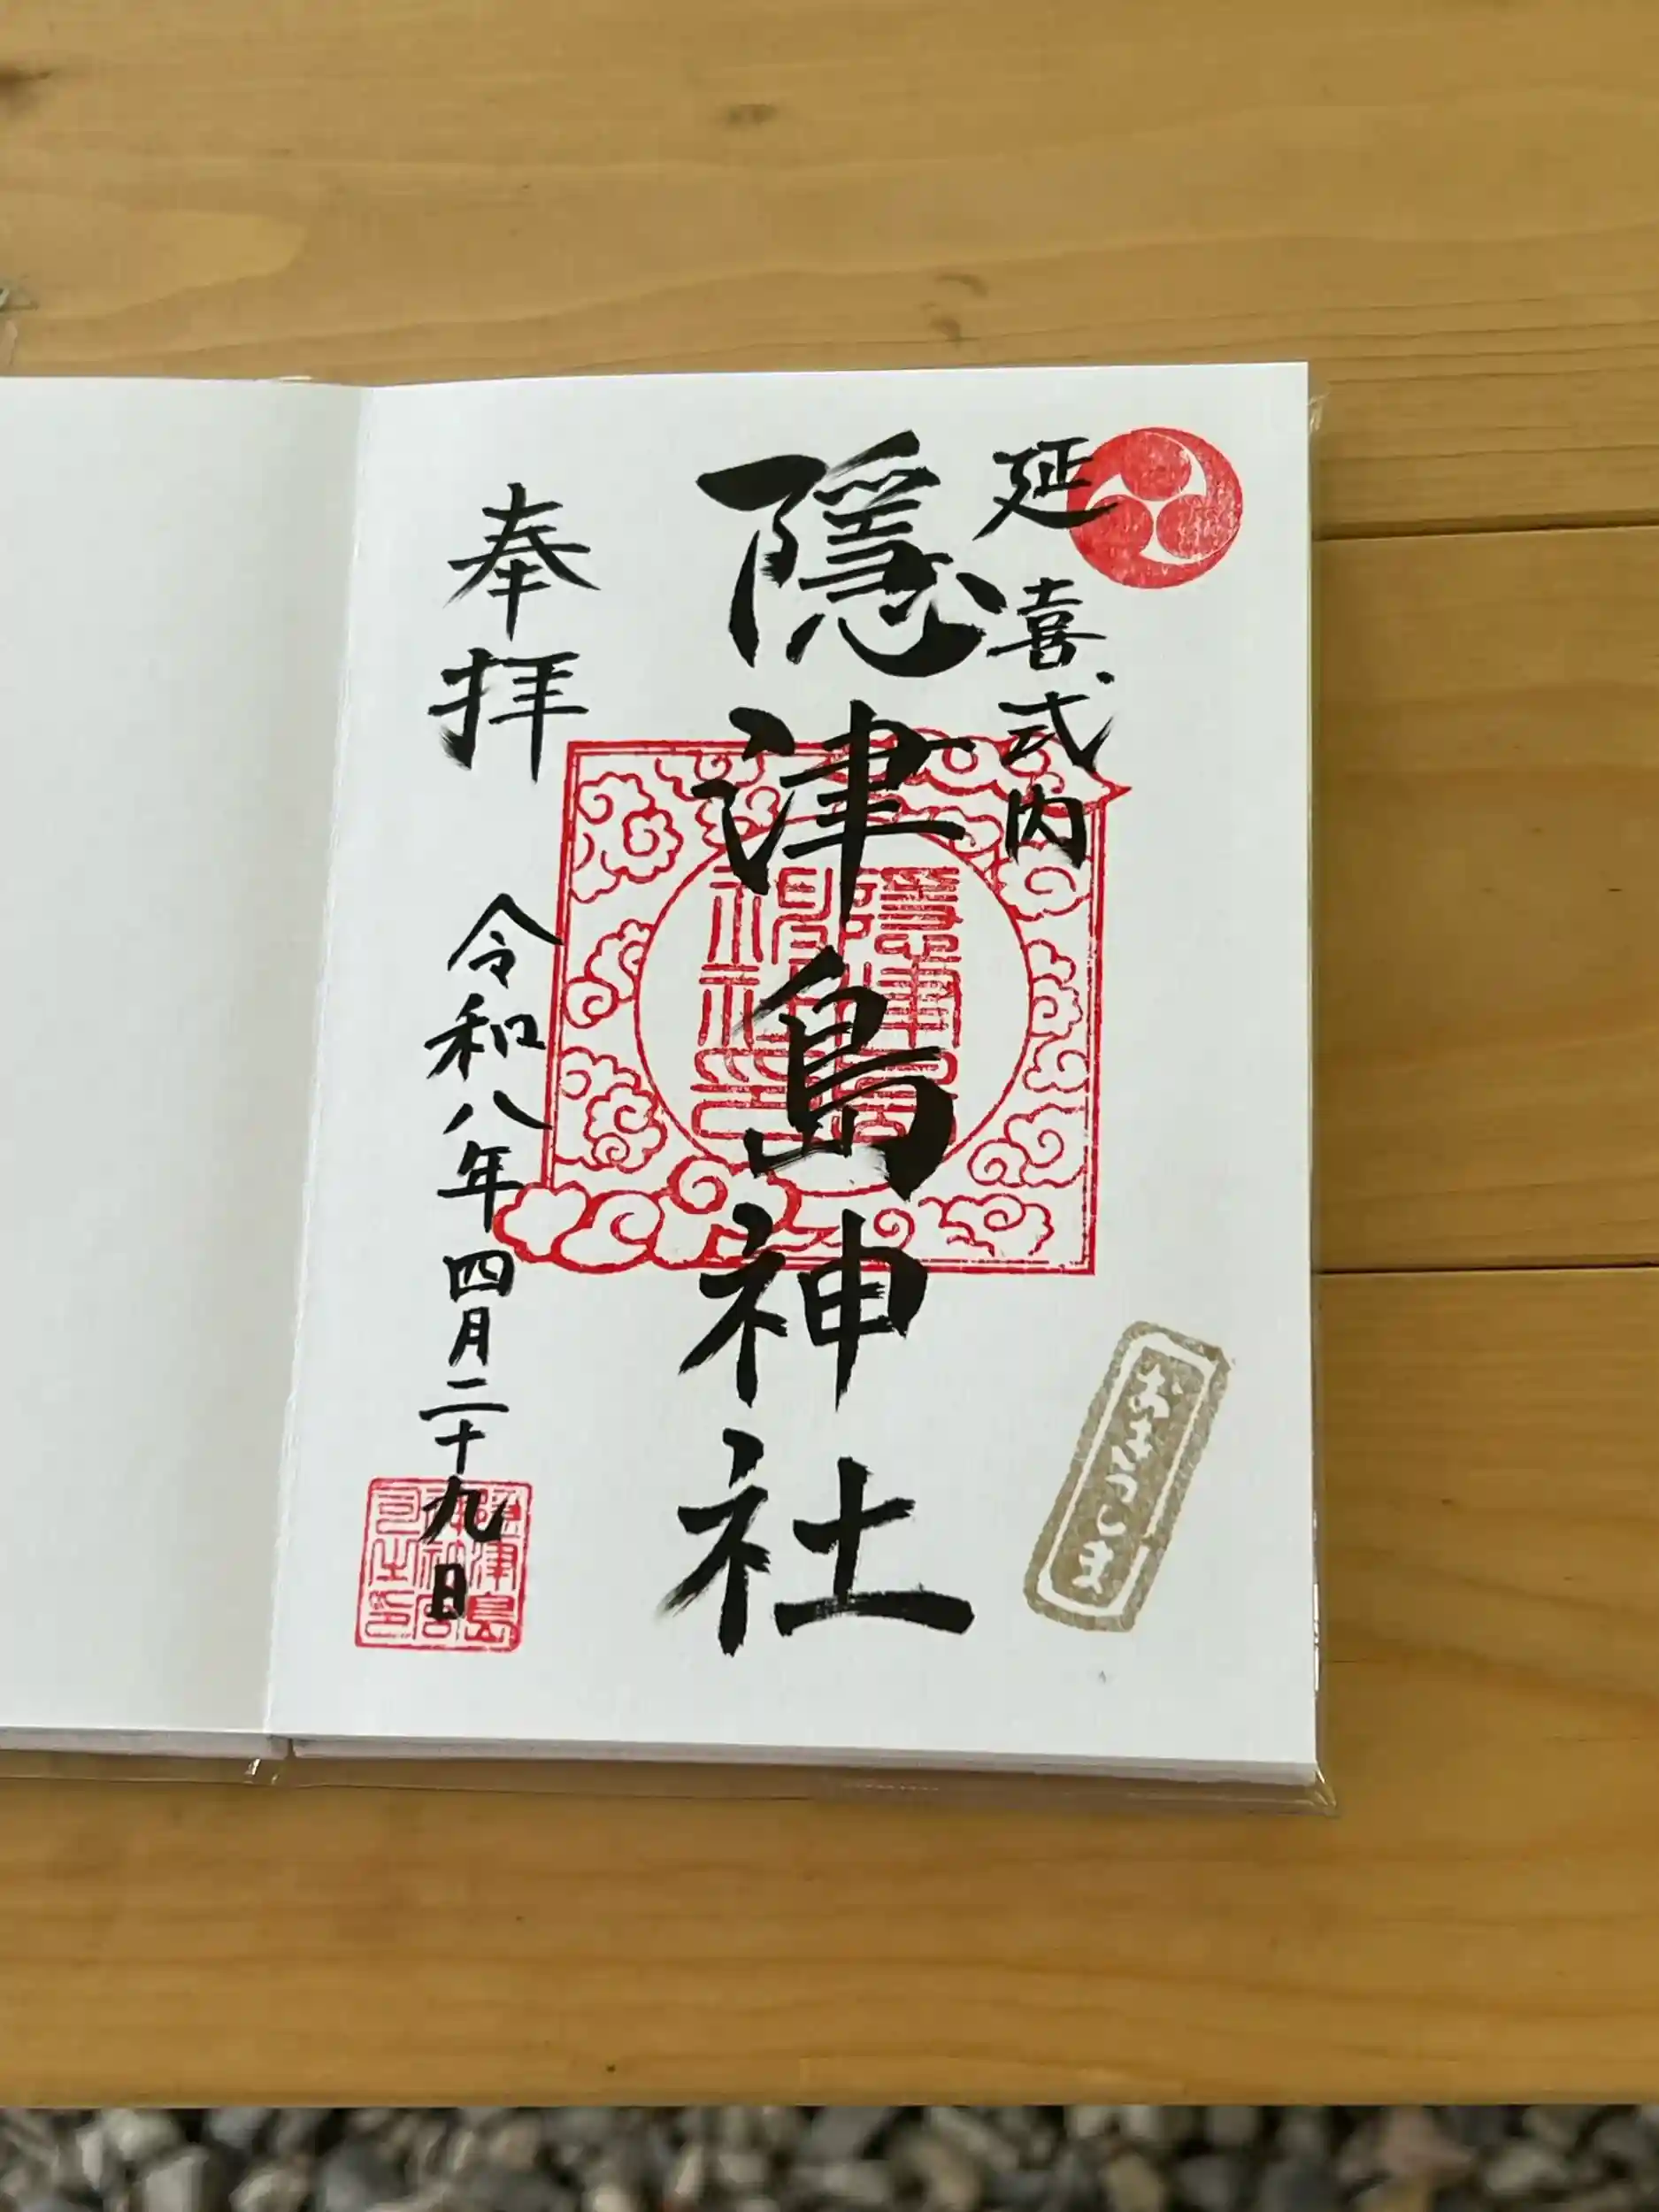 延喜式内
隱津島神社
奉拝
令和八年四月二十九日
隱津島神社印
おきつしま